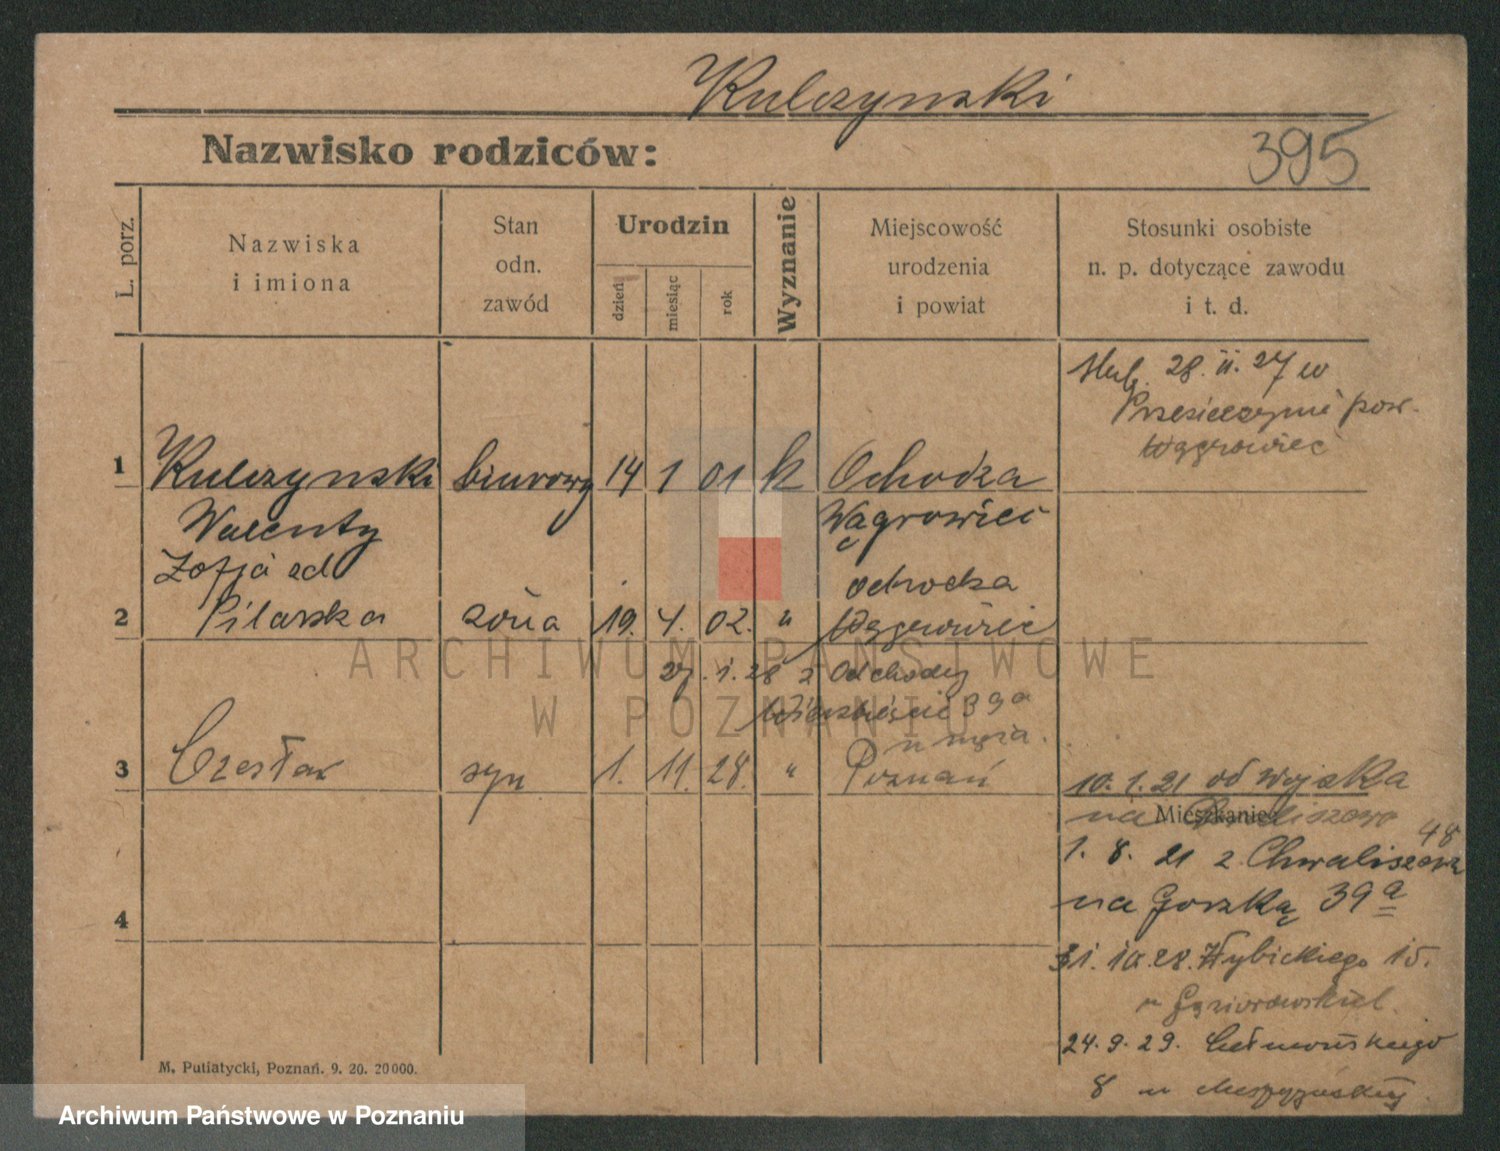 Kulczynski
Nazwisko rodziców:
395
L. porz.
Nazwiska
i imiona
Stan
odn.
zawód
Urodzin
dzień
miesiąc
rok
Wyznanie
Miejscowość
urodzenia
i powiat
Stosunki osobiste
n. p. dotyczące zawodu
i t. d.
28. II. 27 w
pow.
Wągrowiec
1 Kulczynski biurowy 14 1 01 k Ochodza
Walenty Wągrowiec
Zofja ochodza
2 Pilarska żona 19. 4. 02. " Wągrowiec
27. 1. 28 z
39a
u męża.
3 Czesław syn 1. 11. 28. " Poznań
10. 1. 21 od Wojska
na Chwaliszewo
Mieszkanie
48
1. 8. 21 z Chwaliszewa
na Gorzką 39a
4
31. 10. 28. Wybickiego 15.
u
24. 9. 29. Chełmońskiego
8 u
M. Putiatycki, Poznań. 9. 20. 20000.
ARCHIWUM PAŃSTWOWE
W POZNANIU
Archiwum Państwowe w Poznaniu